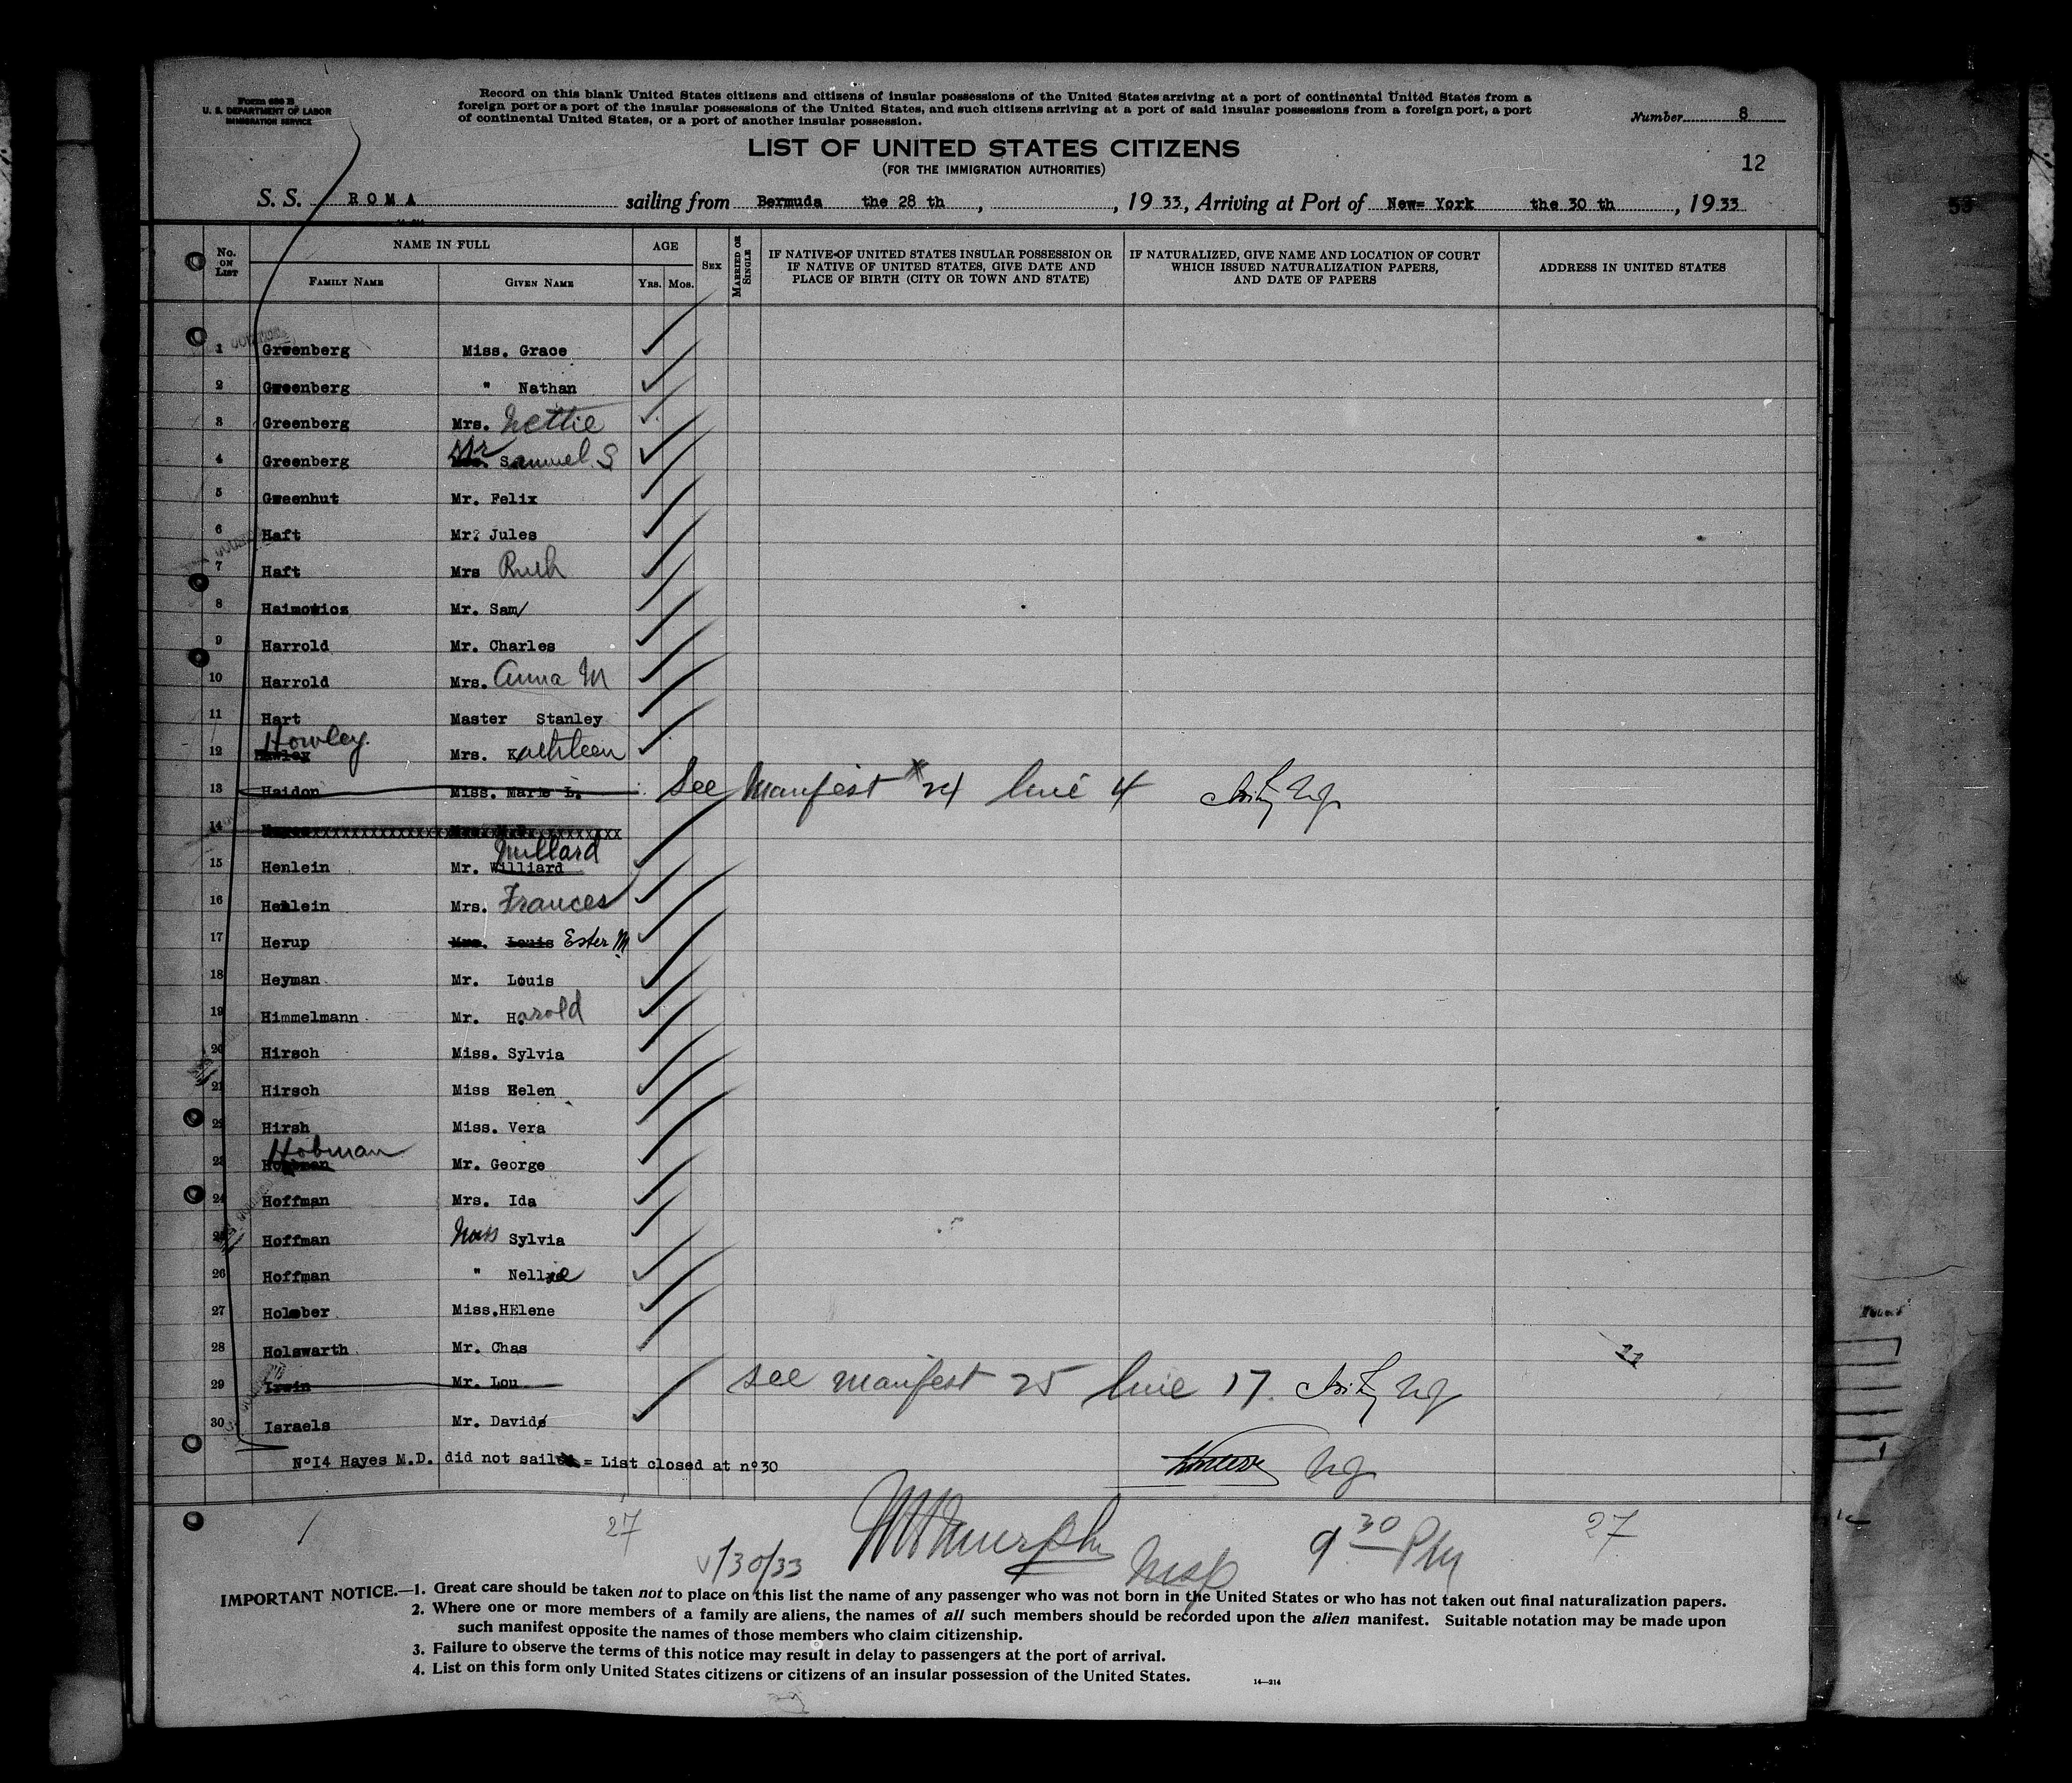 Form 630 B
U. S. DEPARTMENT OF LABOR
IMMIGRATION SERVICE
Record on this blank United States citizens and citizens of insular possessions of the United States arriving at a port of continental United States from a
foreign port or a port of the insular possessions of the United States, and such citizens arriving at a port of said insular possessions from a foreign port, a port
of continental United States, or a port of another insular possession.
Number 8
LIST OF UNITED STATES CITIZENS
(FOR THE IMMIGRATION AUTHORITIES)
12
S. S. ROMA sailing from Bermuda the 28 th , , 1933, Arriving at Port of New= York the 30 th , 1933
No. ON LIST
NAME IN FULL
FAMILY NAME
GIVEN NAME
AGE
YRS. MOS.
SEX
MARRIED OR SINGLE
IF NATIVE OF UNITED STATES INSULAR POSSESSION OR
IF NATIVE OF UNITED STATES, GIVE DATE AND
PLACE OF BIRTH (CITY OR TOWN AND STATE)
IF NATURALIZED, GIVE NAME AND LOCATION OF COURT
WHICH ISSUED NATURALIZATION PAPERS,
AND DATE OF PAPERS
ADDRESS IN UNITED STATES
1 Greenberg Miss. Grace
2 Greenberg " Nathan
3 Greenberg Mrs. Nettie
4 Greenberg Mr Samuel S
5 Greenhut Mr. Felix
6 Haft Mr? Jules
7 Haft Mrs Ruth
8 Haimowics Mr. Sam/
9 Harrold Mr. Charles
10 Harrold Mrs. Anna M
11 Hart Master Stanley
12 Howley Mrs. Kathleen
13 Haidon Miss. Marie L. See Manifest #24 line 4
14
15 Henlein Mr. Williard Millard
16 Henlein Mrs. Frances
17 Herup Mrs. Louis Ester M
18 Heyman Mr. Louis
19 Himmelmann Mr. Harold
20 Hirsch Miss. Sylvia
21 Hirsch Miss Helen
22 Hirsh Miss. Vera
23 Hobman Mr. George
24 Hoffman Mrs. Ida
25 Hoffman Miss Sylvia
26 Hoffman " Nellie
27 Holober Miss.HElene
28 Holswarth Mr. Chas
29 Irwin Mr. Lou see manifest 25 line 17.
30 Israels Mr. David
N°I4 Hayes M.D. did not sail = List closed at n°30
27
V/30/33
Murphy
Insp
9 30 PM
27
IMPORTANT NOTICE.—1. Great care should be taken not to place on this list the name of any passenger who was not born in the United States or who has not taken out final naturalization papers.
2. Where one or more members of a family are aliens, the names of all such members should be recorded upon the alien manifest. Suitable notation may be made upon
such manifest opposite the names of those members who claim citizenship.
3. Failure to observe the terms of this notice may result in delay to passengers at the port of arrival.
4. List on this form only United States citizens or citizens of an insular possession of the United States.
14—214